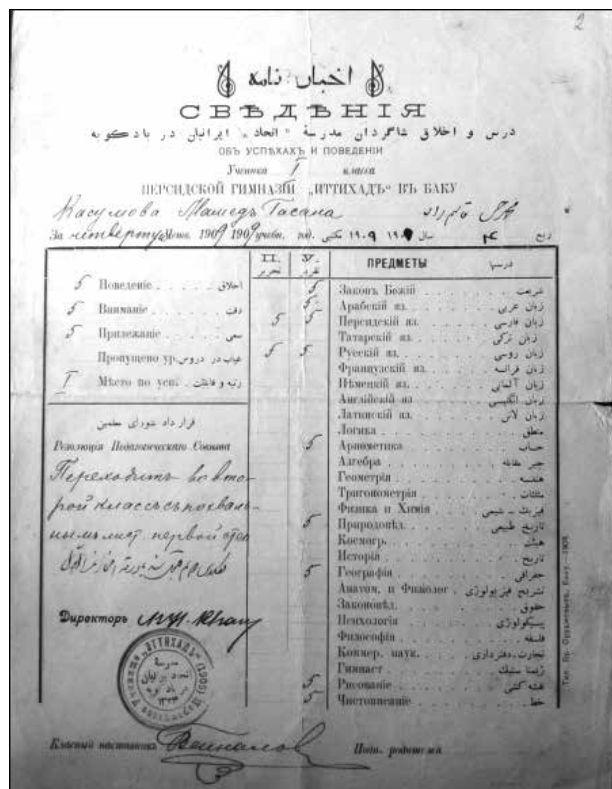 2
اخبار نامه
СВѢДѢНІЯ
درس و اخلاق شاگردان مدرسهٔ «اتحاد» ایرانیان در بادکوبه
ОБЪ УСПѢХАХЪ И ПОВЕДЕНІИ
Ученика I класса
ПЕРСИДСКОЙ ГИМНАЗІИ „ИТТИХАДЪ“ ВЪ БАКУ
Касумова Мамедъ Гасана
За четверту 1909 1909 учебн. год. سال ١٩٠٩ مکتبی ۴ ربع
5 Поведеніе اخلاق
5 Вниманіе دقت
5 Прилежаніе سعی
Пропущено ур. غیاب در دروس
I Мѣсто по усп.
قرار داد شورای معلمین
Резолюція Педагогическаго Совѣта
Переходитъ во вто-
рой классъ съ похваль-
нымъ лист. первой степ
Директоръ
П. تحریر У. تقریر ПРЕДМЕТЫ درسها
5 Законъ Божій شریعت
5 Арабскій яз. زبان عربی
5 5 Персидскій яз. زبان فارسی
Татарскій яз. زبان ترکی
5 5 Русскій яз. زبان روسی
Французскій яз. زبان فرانسه
Нѣмецкій яз. زبان آلمانی
Англійскій яз. زبان انگلیسی
Латинскій яз. زبان لاتن
Логика منطق
5 Ариѳметика حساب
Алгебра جبر مقابله
Геометрія هندسه
Тригонометрія مثلثات
Физика и Химія فیزیک - شیمی
5 Природовѣд. تاریخ طبیعی
Космогр. هیئت
Исторія تاریخ
5 Географія جغرافی
Анатом. и Физіолог. تشریح فیزیولوژی
Законовѣд. حقوق
Психологія پسیکولوژی
Философія فلسفه
Коммер. наук. تجارت دفترداری
Гимнаст ژیمناستیک
5 Рисованіе نقشه کشی
5 Чистописаніе خط
Класный наставникъ
Подп. родителя